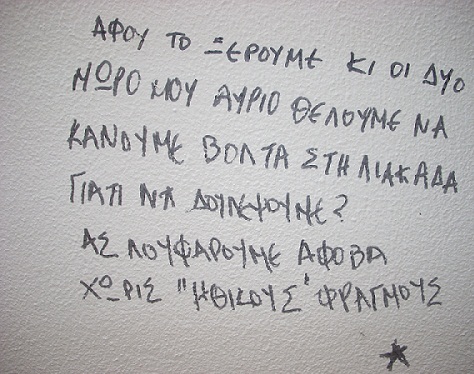 ΑΦΟΥ ΤΟ ΞΕΡΟΥΜΕ ΚΙ ΟΙ ΔΥΟ
ΜΩΡΟ ΜΟΥ ΑΥΡΙΟ ΘΕΛΟΥΜΕ ΝΑ
ΚΑΝΟΥΜΕ ΒΟΛΤΑ ΣΤΗ ΛΙΑΚΑΔΑ
ΓΙΑΤΙ ΝΑ ΔΟΥΛΕΨΟΥΜΕ?
ΑΣ ΛΟΥΦΑΡΟΥΜΕ ΑΦΟΒΑ
ΧΩΡΙΣ "ΗΘΙΚΟΥΣ" ΦΡΑΓΜΟΥΣ